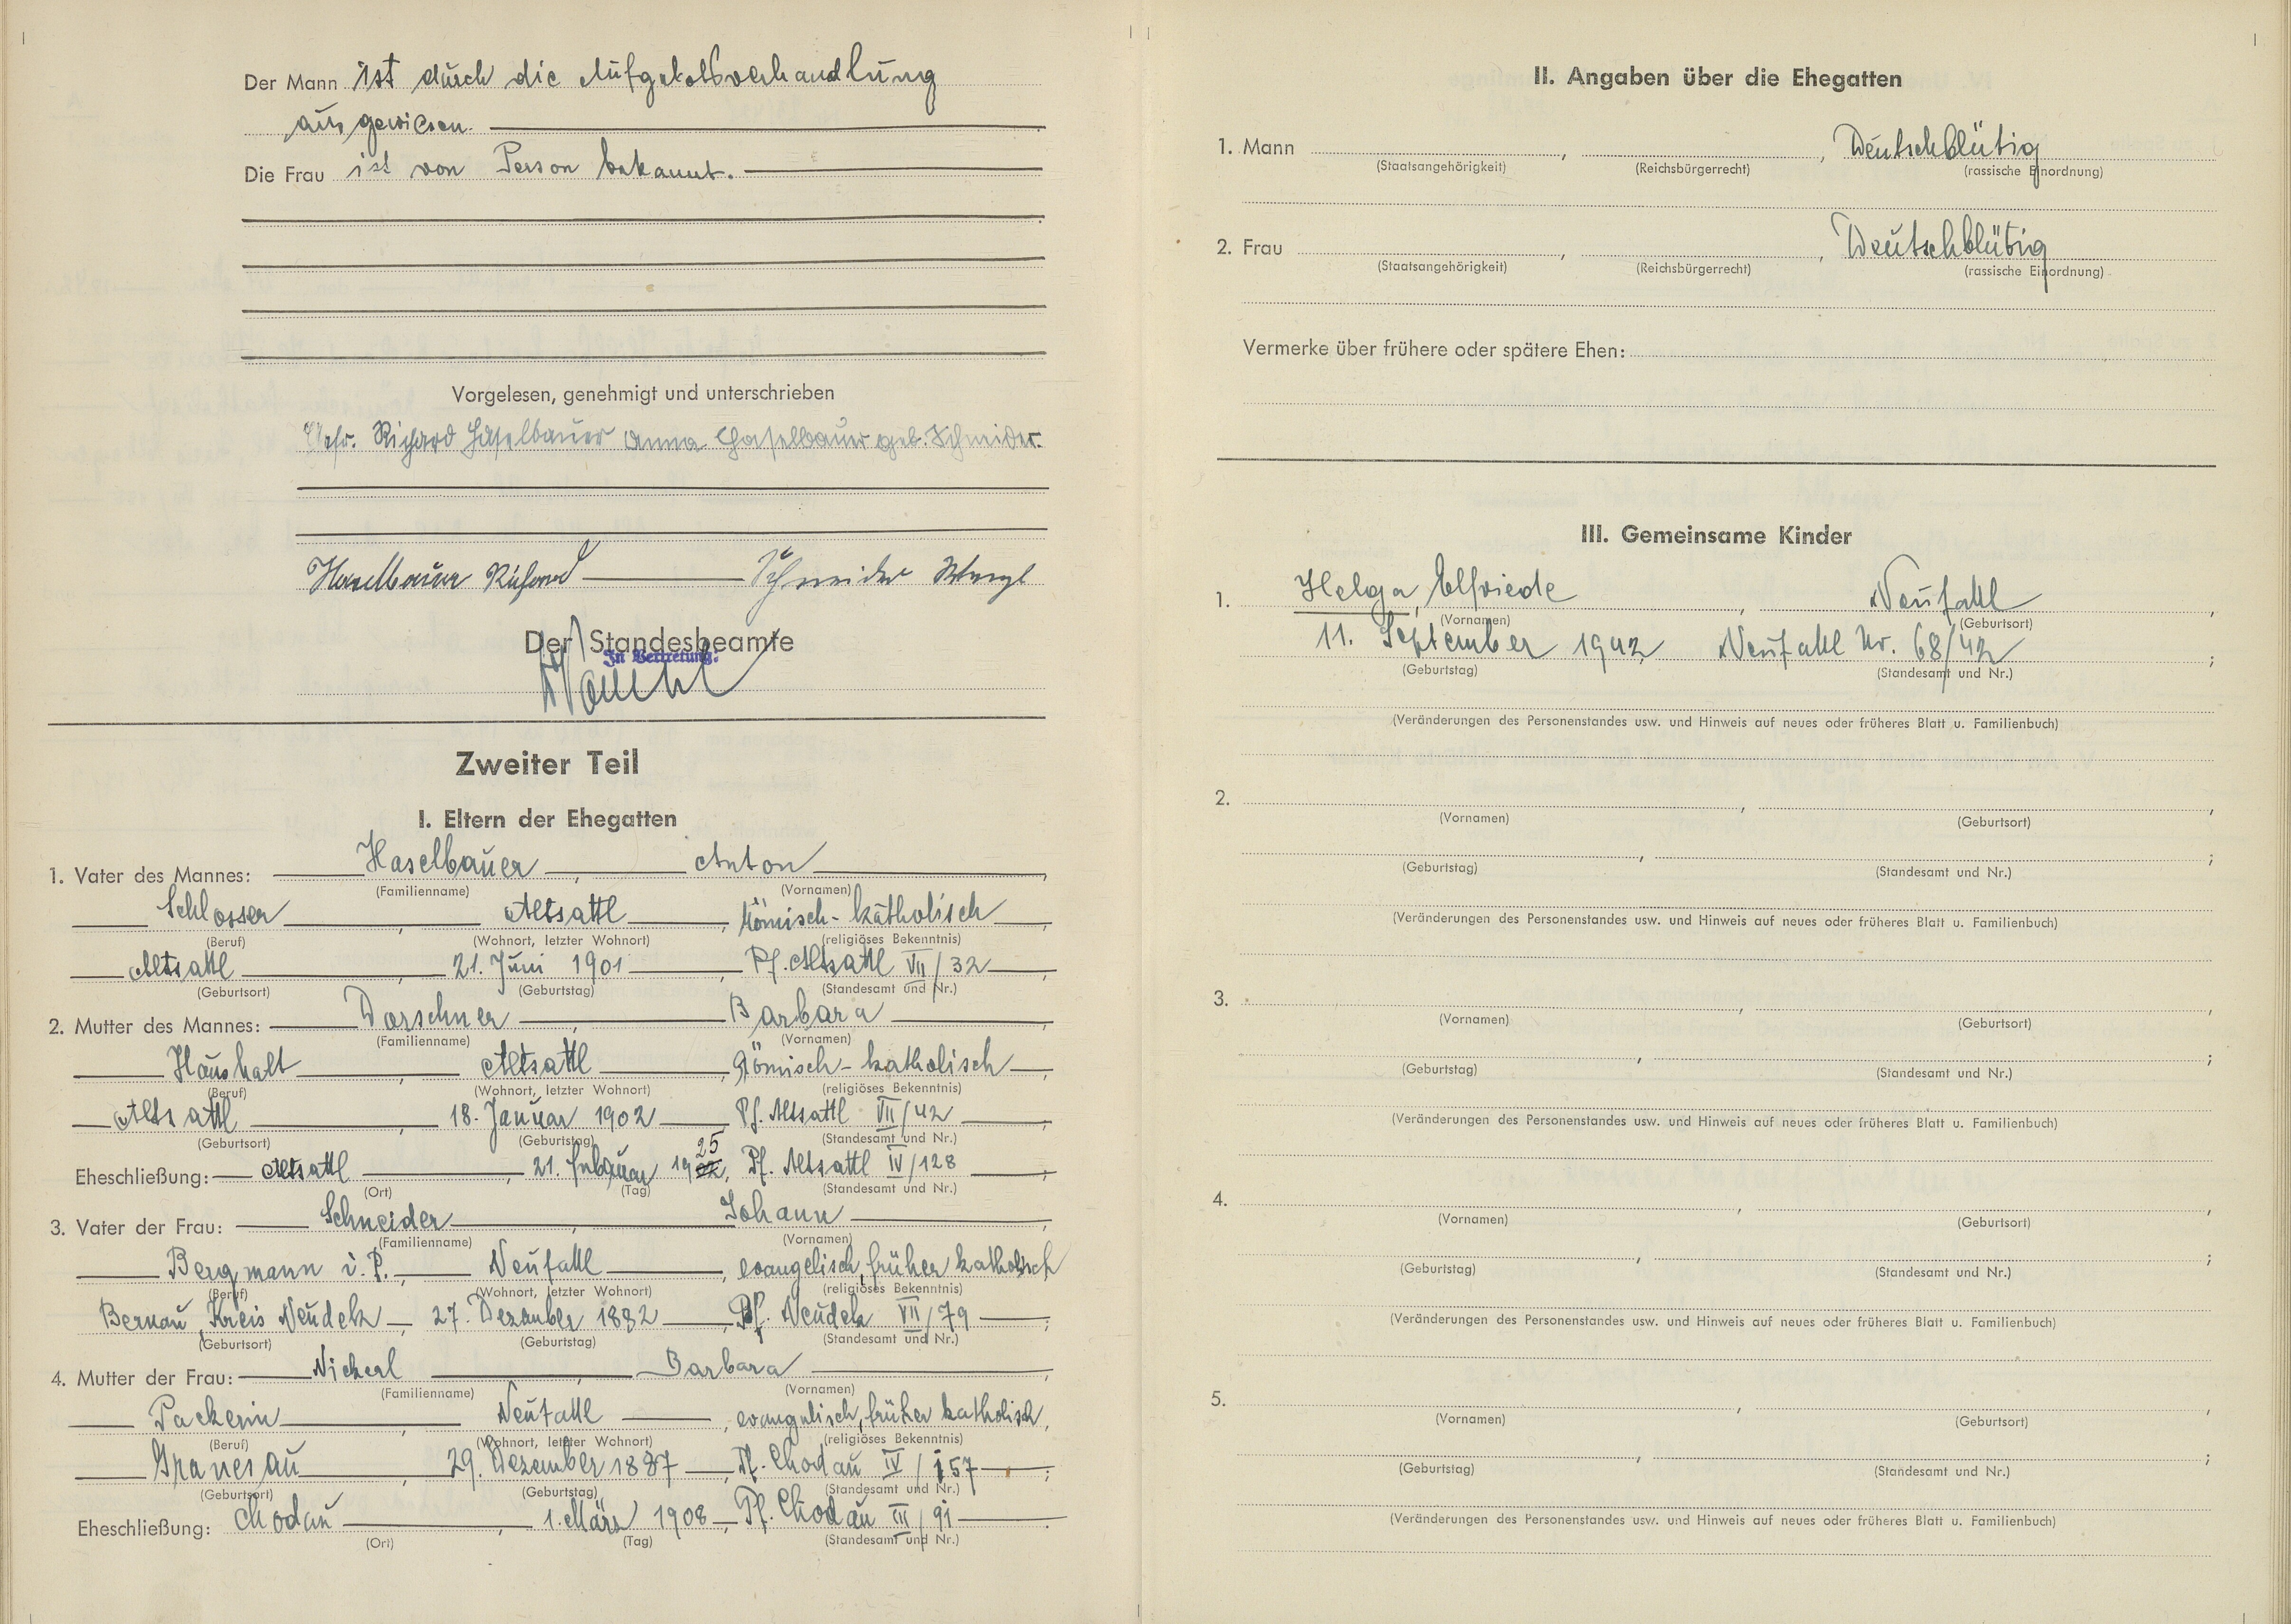 Der Mann ist durch die Aufgebotsverhandlung
ausgewiesen.
Die Frau ist von Person bekannt.
Vorgelesen, genehmigt und unterschrieben
Richard Haselbauer Anna Haselbauer geb. Schneider.
Haselbauer Richard Schneider
Der Standesbeamte
In Vertretung:
Zweiter Teil
I. Eltern der Ehegatten
1. Vater des Mannes: Haselbauer, Anton,
(Familienname) (Vornamen)
Schlosser, Altsattl, Römisch-katholisch,
(Beruf) (Wohnort, letzter Wohnort) (religiöses Bekenntnis)
Altsattl, 21. Juni 1901, Pf. Altsattl VII/32,
(Geburtsort) (Geburtstag) (Standesamt und Nr.)
2. Mutter des Mannes: Dorschner, Barbara,
(Familienname) (Vornamen)
Haushalt, Altsattl, Römisch-katholisch,
(Beruf) (Wohnort, letzter Wohnort) (religiöses Bekenntnis)
Altsattl, 18. Januar 1902, Pf. Altsattl VII/42,
(Geburtsort) (Geburtstag) (Standesamt und Nr.)
Eheschließung: Altsattl, 21. Februar 1925, Pf. Altsattl IV/128;
(Ort) (Tag) (Standesamt und Nr.)
3. Vater der Frau: Schneider, Johann,
(Familienname) (Vornamen)
Bergmann i. P., Neusattl, evangelisch, früher katholisch
(Beruf) (Wohnort, letzter Wohnort) (religiöses Bekenntnis)
Bernau, Kreis Neudek, 27. Dezember 1882, Pf. Neudek VII/79;
(Geburtsort) (Geburtstag) (Standesamt und Nr.)
4. Mutter der Frau: Nickerl, Barbara,
(Familienname) (Vornamen)
Packerin, Neusattl, evangelisch, früher katholisch,
(Beruf) (Wohnort, letzter Wohnort) (religiöses Bekenntnis)
Granesau, 29. Dezember 1887, Pf. Chodau IV/157;
(Geburtsort) (Geburtstag) (Standesamt und Nr.)
Eheschließung: Chodau, 1. März 1908, Pf. Chodau III/91.
(Ort) (Tag) (Standesamt und Nr.)
II. Angaben über die Ehegatten
1. Mann , , Deutschblütig
(Staatsangehörigkeit) (Reichsbürgerrecht) (rassische Einordnung)
2. Frau , , Deutschblütig
(Staatsangehörigkeit) (Reichsbürgerrecht) (rassische Einordnung)
Vermerke über frühere oder spätere Ehen:
III. Gemeinsame Kinder
1. Helga, Elfriede, Neusattl,
(Vornamen) (Geburtsort)
11. September 1942 Neusattl Nr. 68/42;
(Geburtstag) (Standesamt und Nr.)
(Veränderungen des Personenstandes usw. und Hinweis auf neues oder früheres Blatt u. Familienbuch)
2. , ,
(Vornamen) (Geburtsort)
, ;
(Geburtstag) (Standesamt und Nr.)
(Veränderungen des Personenstandes usw. und Hinweis auf neues oder früheres Blatt u. Familienbuch)
3. , ,
(Vornamen) (Geburtsort)
, ;
(Geburtstag) (Standesamt und Nr.)
(Veränderungen des Personenstandes usw. und Hinweis auf neues oder früheres Blatt u. Familienbuch)
4. , ,
(Vornamen) (Geburtsort)
, ;
(Geburtstag) (Standesamt und Nr.)
(Veränderungen des Personenstandes usw. und Hinweis auf neues oder früheres Blatt u. Familienbuch)
5. , ,
(Vornamen) (Geburtsort)
, ;
(Geburtstag) (Standesamt und Nr.)
(Veränderungen des Personenstandes usw. und Hinweis auf neues oder früheres Blatt u. Familienbuch)